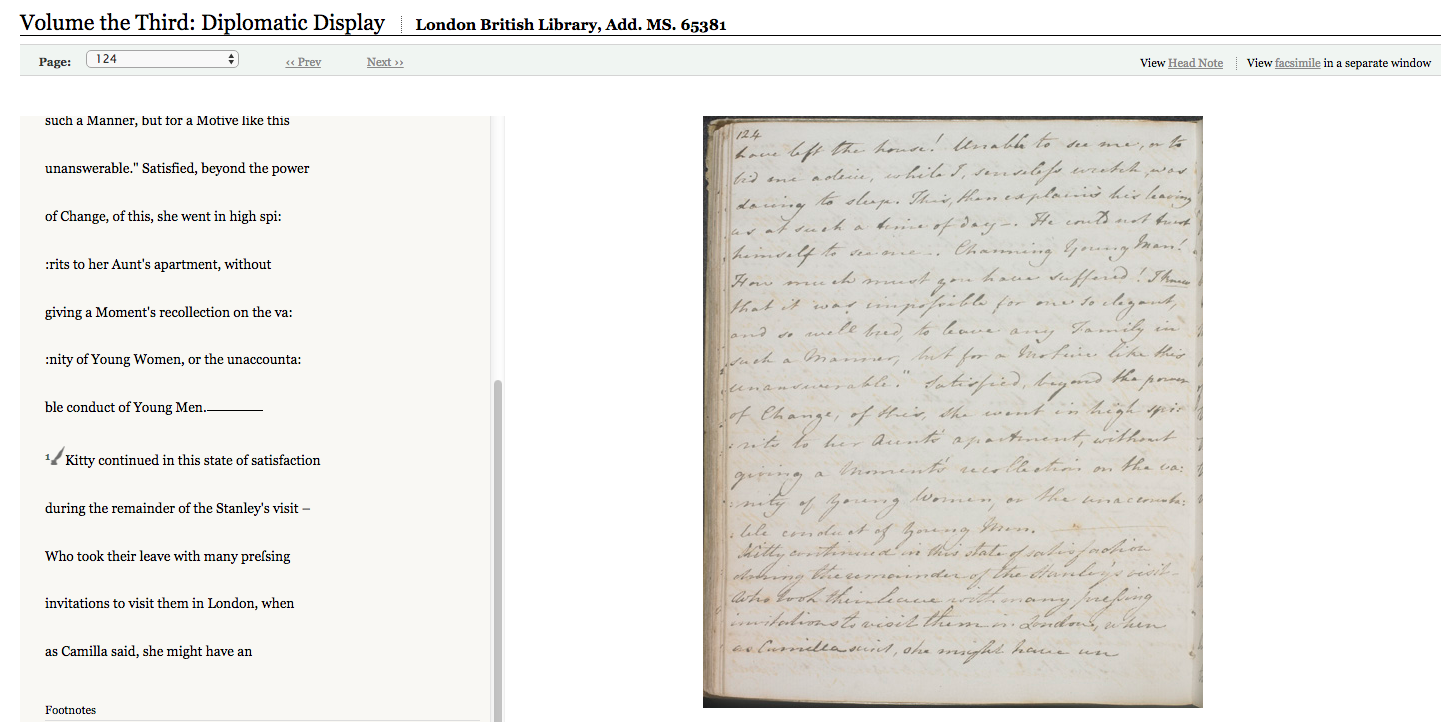 Volume the Third: Diplomatic Display
London British Library, Add. MS. 65381
Page: 124 ‹‹ Prev Next ›› View Head Note View facsimile in a separate window
such a Manner, but for a Motive like this
unanswerable." Satisfied, beyond the power
of Change, of this, she went in high spi:
:rits to her Aunt's apartment, without
giving a Moment's recollection on the va:
:nity of Young Women, or the unaccounta:
ble conduct of Young Men.
1 Kitty continued in this state of satisfaction
during the remainder of the Stanley's visit –
Who took their leave with many preſsing
invitations to visit them in London, when
as Camilla said, she might have an
Footnotes
124
have left the house! Unable to see me, or to
bid me adeiu, while I, senseleſs wretch, was
daring to sleep. This, then explains his leaving
us at such a time of day —. He could not trust
himself to see me —. Charming Young Man!
How much must you have suffered! I knew
that it was impoſsible for one so elegant,
and so well bred, to leave any Family in
such a Manner, but for a Motive like this
unanswerable." Satisfied, beyond the power
of Change, of this, she went in high spi:
:rits to her Aunt's apartment, without
giving a Moment's recollection on the va:
:nity of Young Women, or the unaccounta:
:ble conduct of Young Men.
Kitty continued in this state of satisfaction
during the remainder of the Stanley's visit –
Who took their leave with many preſsing
invitations to visit them in London, when
as Camilla said, she might have an